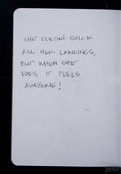 SHE DOESN'T STICK
ALL HER LANDINGS,
BUT WHEN SHE
DOES IT FEELS
AWESOME!